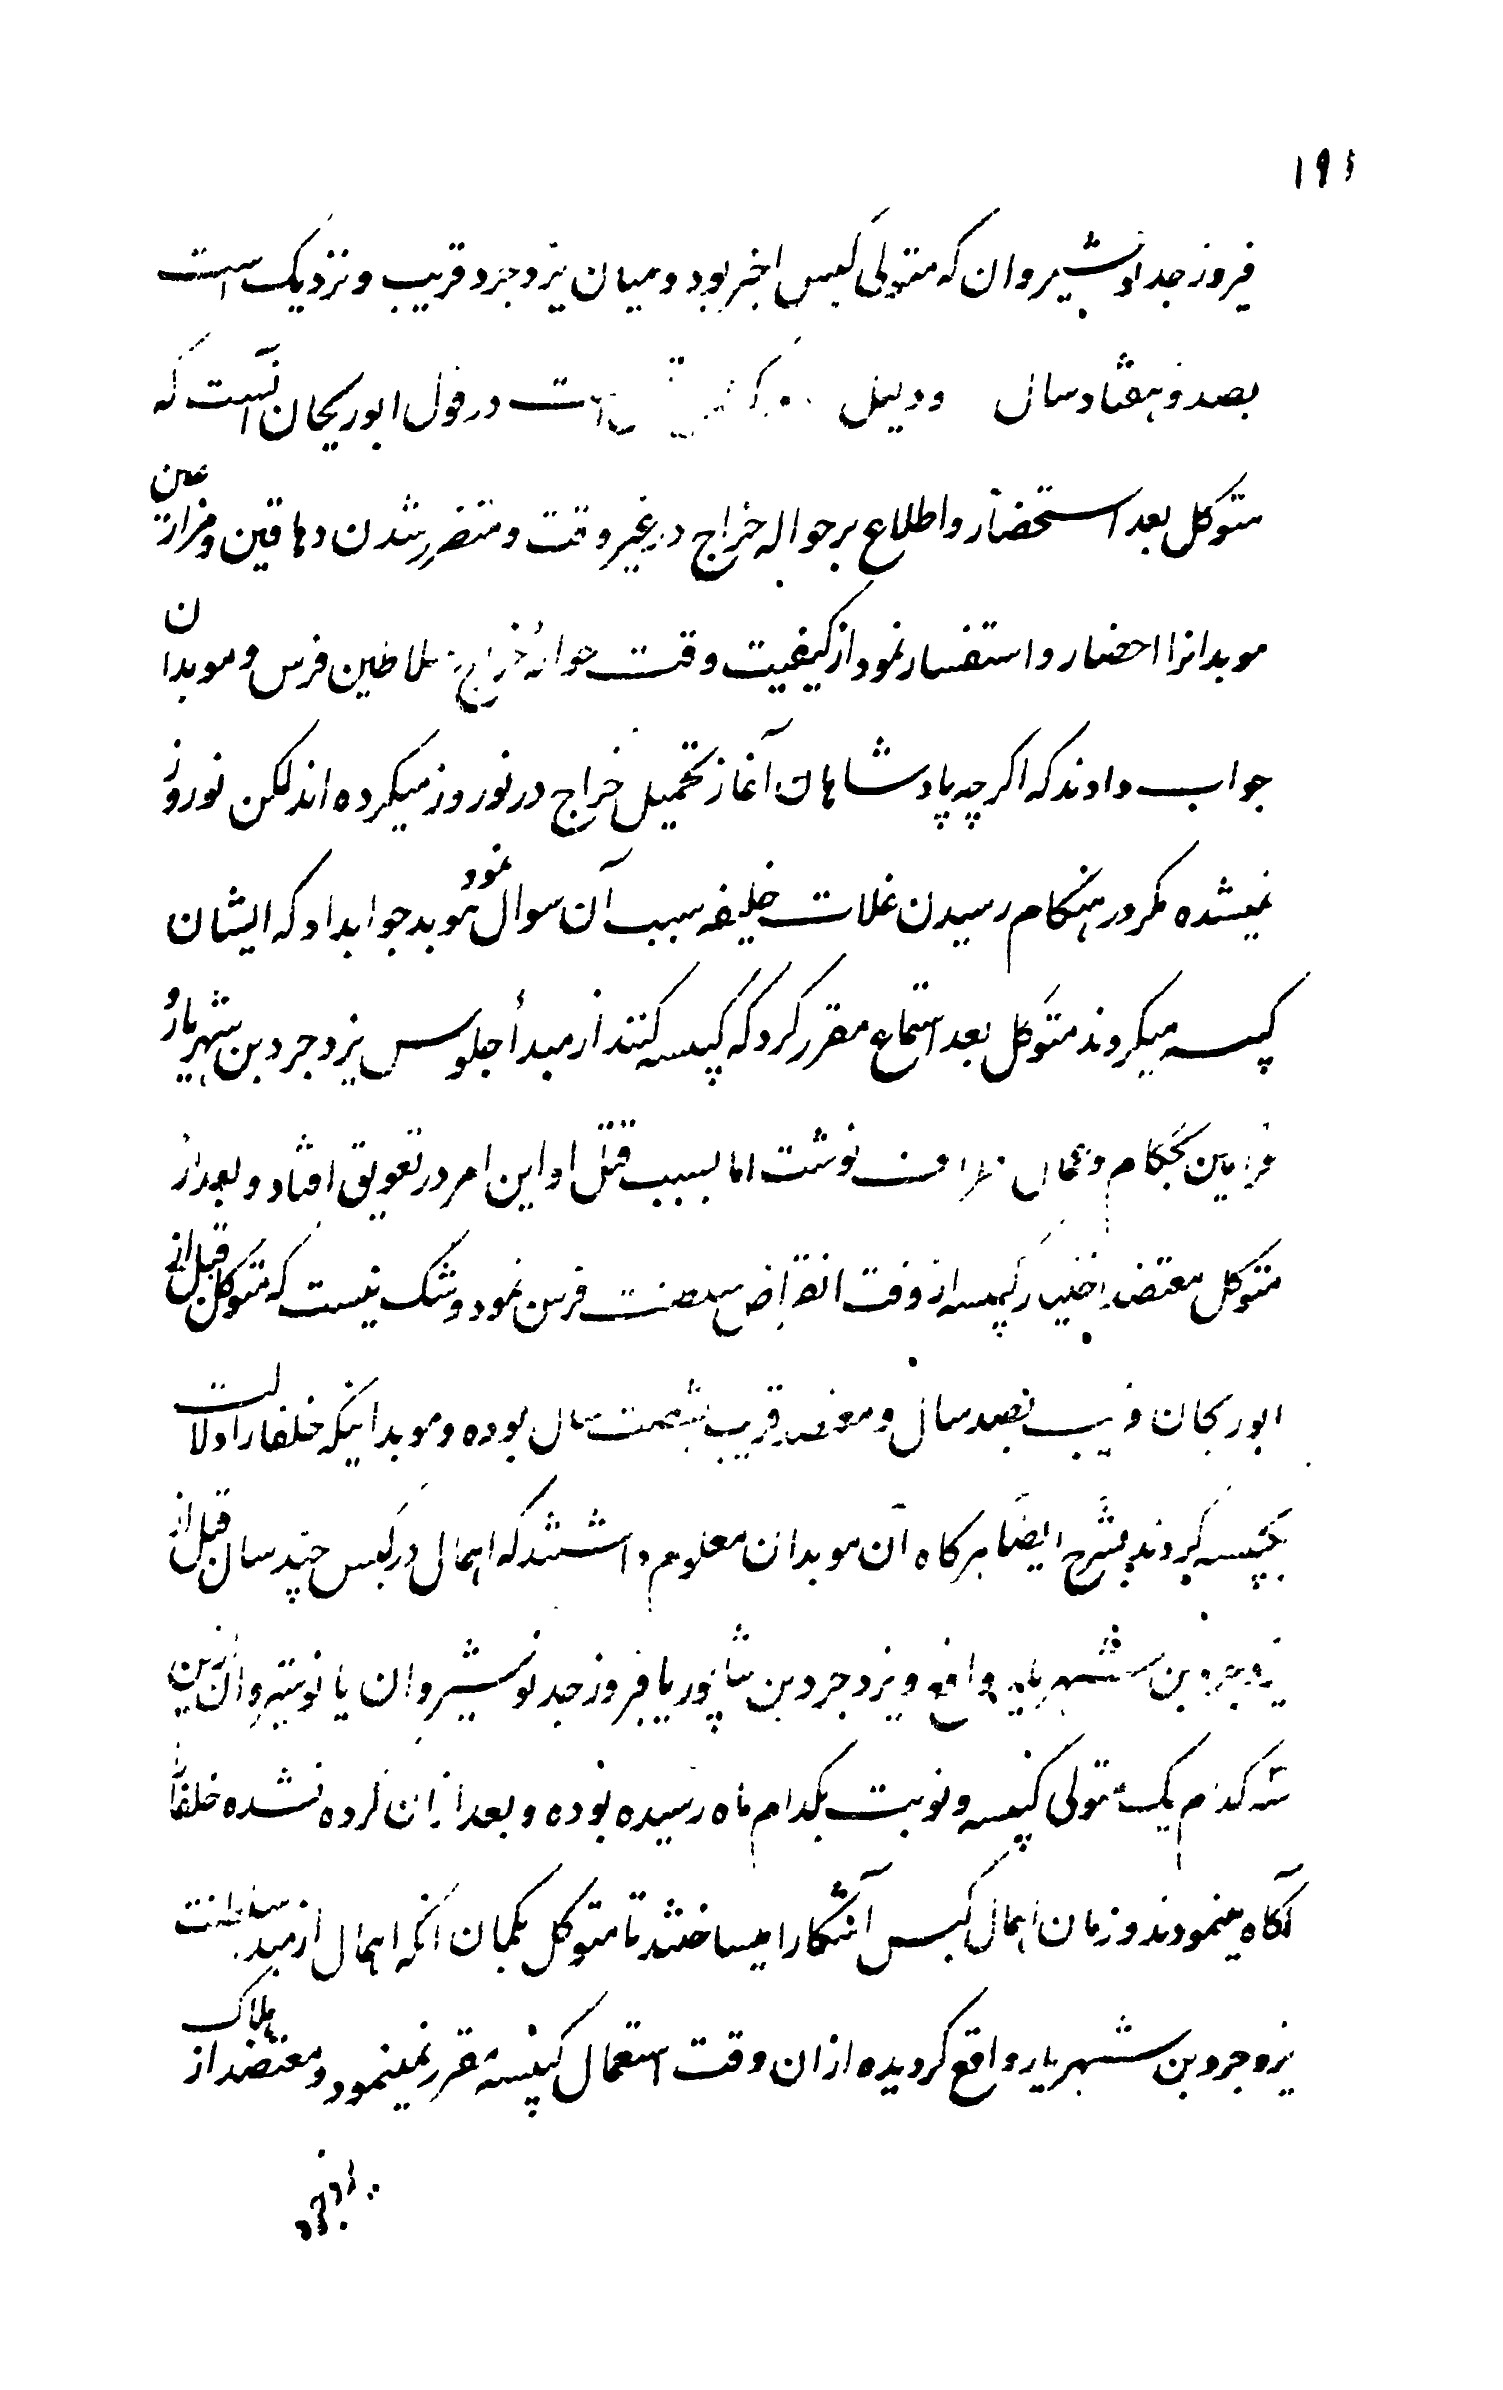 فروز جد نوشیروان که متولی کبس اخیر بود و میان یزدجرد قریب و نزدیک است
بصد و هفتاد سال و دلیل است در قول ابوریحان آنست که
متوکل بعد استحضار و اطلاع بر حواله خراج در غیر وقت و متضرر شدن دهاقین و مزارعین
موبدانرا احضار و استفسار نمود از کیفیت وقت حوالهٔ خراج سلاطین فرس و موبدان
جواب دادند که اکرچه پادشاهان آغاز تحمیل خراج در نوروز میکرده اند لکن نوروز
نمیشده مکر در هنکام رسیدن غلات خلیفه سبب آن سوال نمود موبد جواب داد که ایشان
کپیسه میکردند متوکل بعد استماع مقرر کرد که کپیسه کنند از مبدأ جلوس یزدجرد بن شهریار و
فرامین بحکام و عمال نوشت اما بسبب قتل او این امر در تعویق افتاد و بعد از
متوکل معتضد اختیار کپیسه از وقت انقراض سلطنت فرس نمود و شک نیست که متوکل قبل از
ابوریحان قریب بصد سال و معتضد قریب شصت سال بوده و موبد اینکه خلفا را دلالت
بکپیسه کردند بشرح ایضا هرکاه آن موبدان معلوم داشتند که اهمالی در کبس چند سال قبل از
یزدجرد بن شهریار واقع و یزدجرد بن شاپور یا فروز جد نوشیروان یا نوشیروان ازین
سه کدام یک متولی کپیسه و نوبت بکدام ماه رسیده بوده و بعد ازان کرده نشده خلفا را
آکاه مینمودند و زمان اهمال کبس آشکارا میساختند تا متوکل بکمان آنکه اهمال از مبدء سلطنت
یزدجرد بن شهریار واقع کردیده ازان وقت استعمال کپیسه مقرر نمینمود و معتضد از هلاک